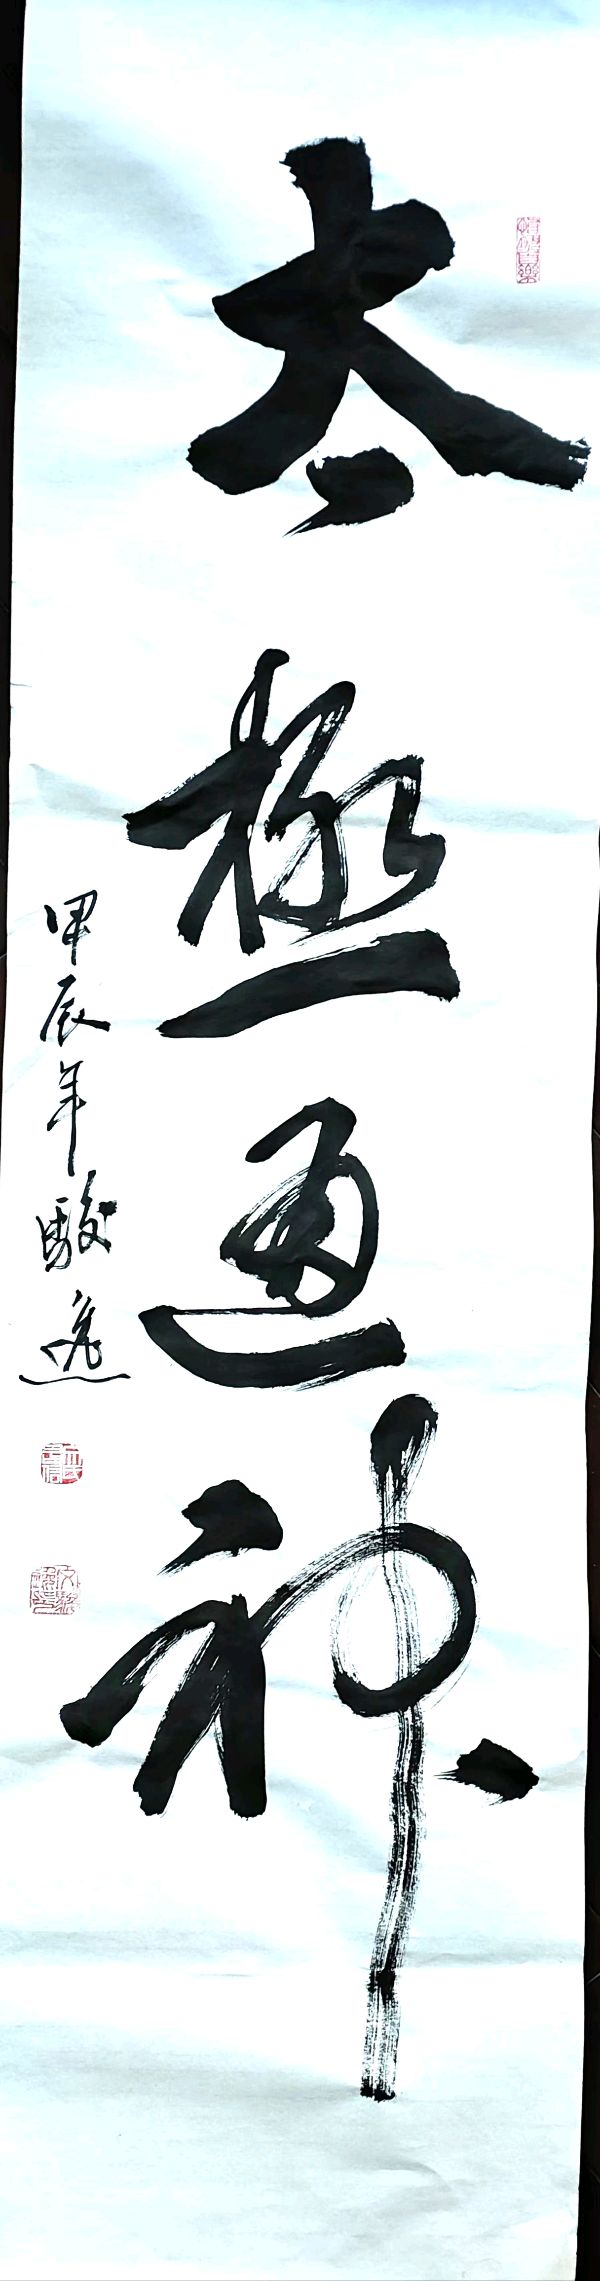 太極通神
甲辰年駿逸